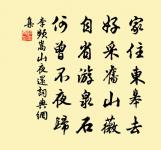 家住東皋去
好采舊山薇
自省游泉石
何曾不夜歸
李頻嵩山夜還詞典網
集